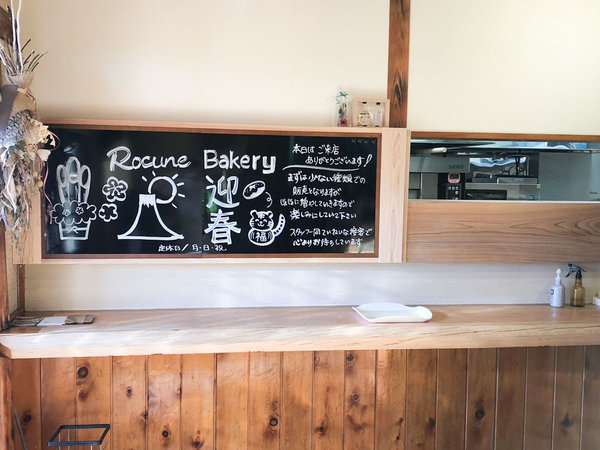 Rocune Bakery
迎
春
福
定休日/月・日・祝
本日は ご来店
ありがとうございます!
まずは少ない種類での
販売となりますが
徐々に増やしていきますので
楽しみにしていて下さい
スタッフ一同ていねいな接客で
心よりお待ちしています